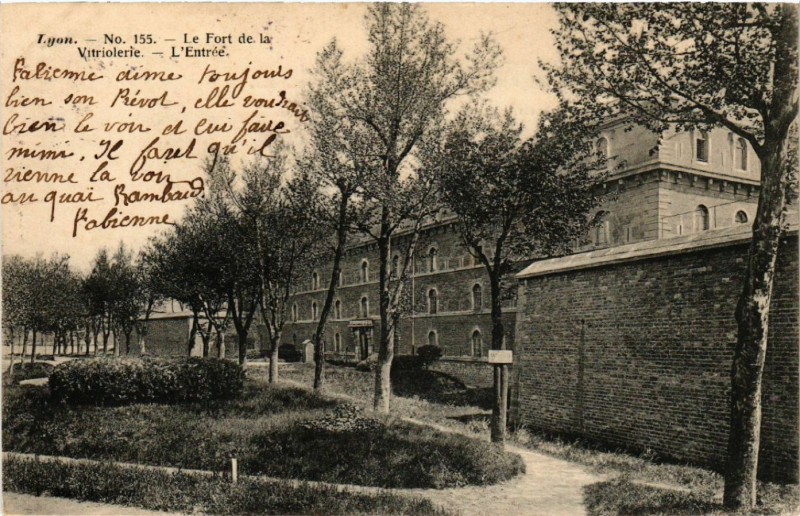 Lyon. — No. 155. — Le Fort de la
Vitriolerie. — L'Entrée.
Fabienne aime toujours
bien son Prévot, elle voudrait
bien le voir et lui faire
mimi. Il faret qu'il
vienne la voir
au quai Rambaud
Fabienne